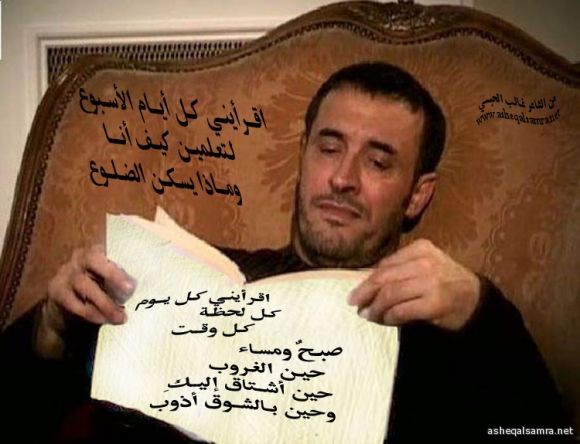 اقرأيني كل أيام الأسبوع
لتعلمين كيف أنا
وماذا يسكن الضلوع
من الشاعر غالب الحبسي
www.asheqalsamra.net
اقرأيني كل يوم
كل لحظة
كل وقت
صبحٌ ومساء
حين الغروب
حين أشتاق إليكِ
وحين بالشوق أذوب
asheqalsamra.net